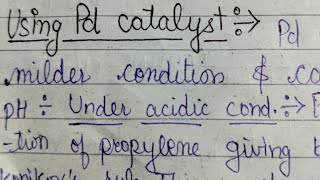 Using Pd catalyst ÷→ Pd
milder condition & co
pH ÷ Under acidic cond. ÷→
-tion of propylene giving